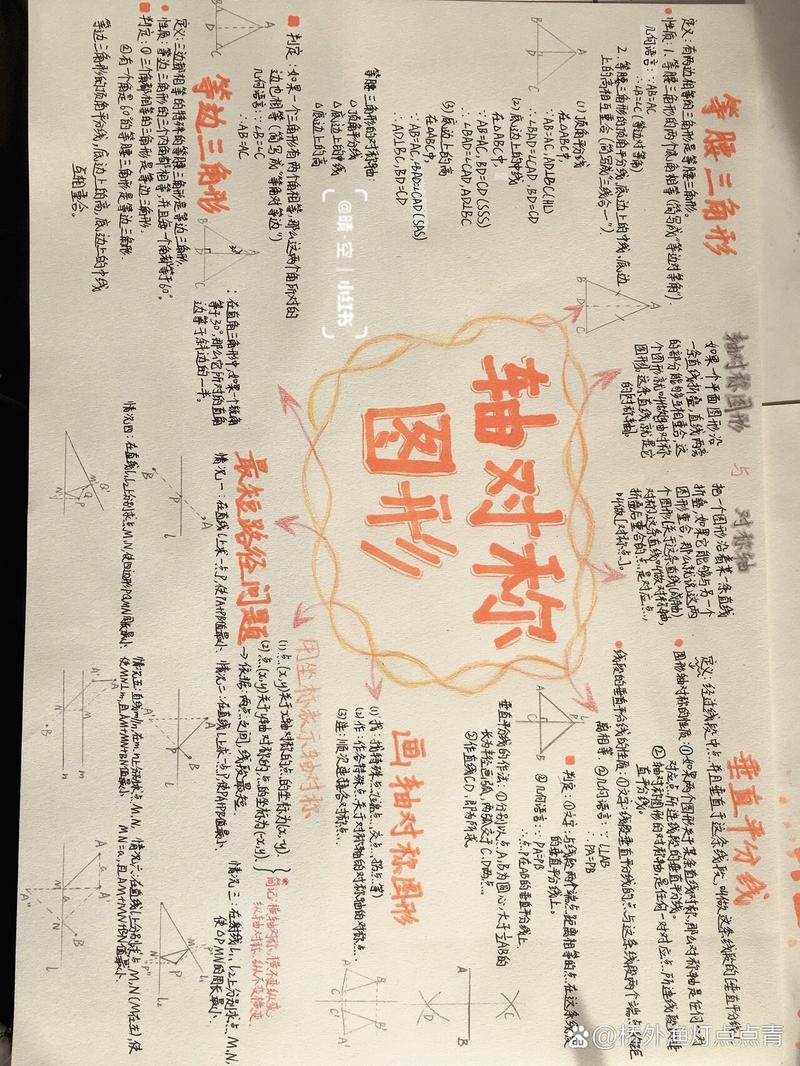 轴对称
图形
等腰三角形
定义:有两边相等的三角形是等腰三角形。
性质:1. 等腰三角形的两个底角相等(简写成“等边对等角”);
几何语言:∵AB=AC
∴∠B=∠C(等边对等角)
2. 等腰三角形的顶角平分线,底边上的中线,底边
上的高相互重合(简写成“三线合一”).
(1)顶角平分线
在△ABC中,
∵AB=AC,AD⊥BC(HL)
∴∠BAD=∠CAD,BD=CD
(2)底边上的中线
在△ABC中
∵AB=AC,BD=CD(SSS)
∴∠BAD=∠CAD,AD⊥BC
(3)底边上的高
在△ABC中,
∵AB=AC,∠BAD=∠CAD(SAS)
∴AD⊥BC,BD=CD
等腰三角形的对称轴:
△顶角平分线
△底边上的中线
△底边上的高
判定:如果一个三角形有两个角相等,那么这两个角所对的
边也相等(简写成“等角对等边”)
几何语言:∵∠B=∠C
∴AB=AC
等边三角形
定义:三边都相等的特殊的等腰三角形是等边三角形.
性质:等边三角形的三个内角都相等,并且每一个角都等于60°.
判定:①三个角都相等的三角形是等边三角形.
②有一个角是60°的等腰三角形是等边三角形.
等边三角形的顶角平分线,底边上的高,底边上的中线
互相重合。
:在直角三角形中,如果一个锐角
等于30°,那么它所对的直角
边等于斜边的一半。
轴对称图形 与 对称轴
如果一个平面图形沿
一条直线折叠,直线两旁
的部分能够互相重合,这
个图形就叫做轴对称
图形,这条直线就是它
的[对称轴]
把一个图形沿着某一条直线
折叠,如果它能够与另一个
图形重合,那么就说这两
个图形[关于这条直线(成轴)
对称],这条直线叫做对称轴,
折叠后重合的点是对应点,
叫做[对称点]。
垂直平分线
定义:经过线段中点,并且垂直于这条线段,叫做这条线段的[垂直平分线]
图形轴对称的性质:①如果两个图形关于某条直线对称,那么对称轴是任何一对
对应点所连线段的垂直平分线。
②轴对称图形的对称轴,是任何一对对应点所连线段的垂
直平分线。
线段的垂直平分线的性质:①文字:线段垂直平分线的点与这条线段两个端点的距
离相等. ②几何语言:∵l⊥AB
∴PA=PB
判定:①文字:与线段两个端点距离相等的点在这条线段
的垂直平分线上。
②几何语言:∵PA=PB
∴点P在AB的垂直平分线上
垂直平分线的作法:①分别以点A,B为圆心,大于½AB的
长为半径画弧,两弧交于C,D两点.
②作直线CD,即为所求
画轴对称图形
(1)找:找特殊点(端点、交点、拐点等)
(2)作:作各特殊点关于对称轴的对称点.
(3)连:顺次连接各对称点.
用坐标表示轴对称
(1)点(x,y)关于x轴对称的点的坐标为(x,-y).
(2)点(x,y)关于y轴对称的点的坐标为(-x,y).
简记:横轴对称,横不变纵变
纵轴对称,纵不变横变
最短路径问题
→依据:两点之间,线段最短.
情况一:在直线l上求一点P,使PA+PB值最小.
情况二:在直线l上求一点P,使PA+PB值最小.
情况三:在射线l₁,l₂上分别求点M,N,
使△PMN的周长最小.
情况四:在直线l₁,l₂上分别求点M,N,使四边形PQMN周长最小.
情况五:直线m//n,在m,n上分别求点M,N,
使MN⊥m,且AM+MN+BN值最小.
情况六:在直线l上分别求点M,N(M在左),使
MN=a,且AM+MN+BN值最小.
@晴·空 | 小红书
@楼外渔灯点点青